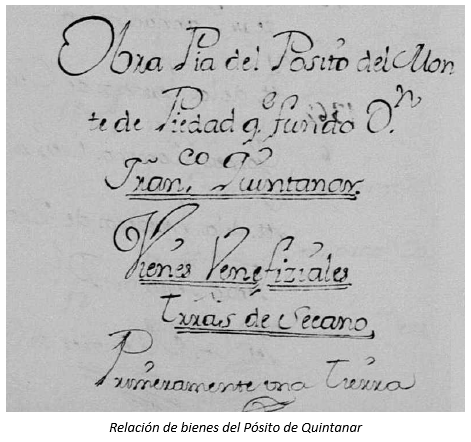 Obra Pia del Posito del Mon
te de Piedad q.e fundo D.n
Fran.co Quintanar.
Vienes Venefiziales
Trras de Secano,
Primeramente vna Tierra
Relación de bienes del Pósito de Quintanar